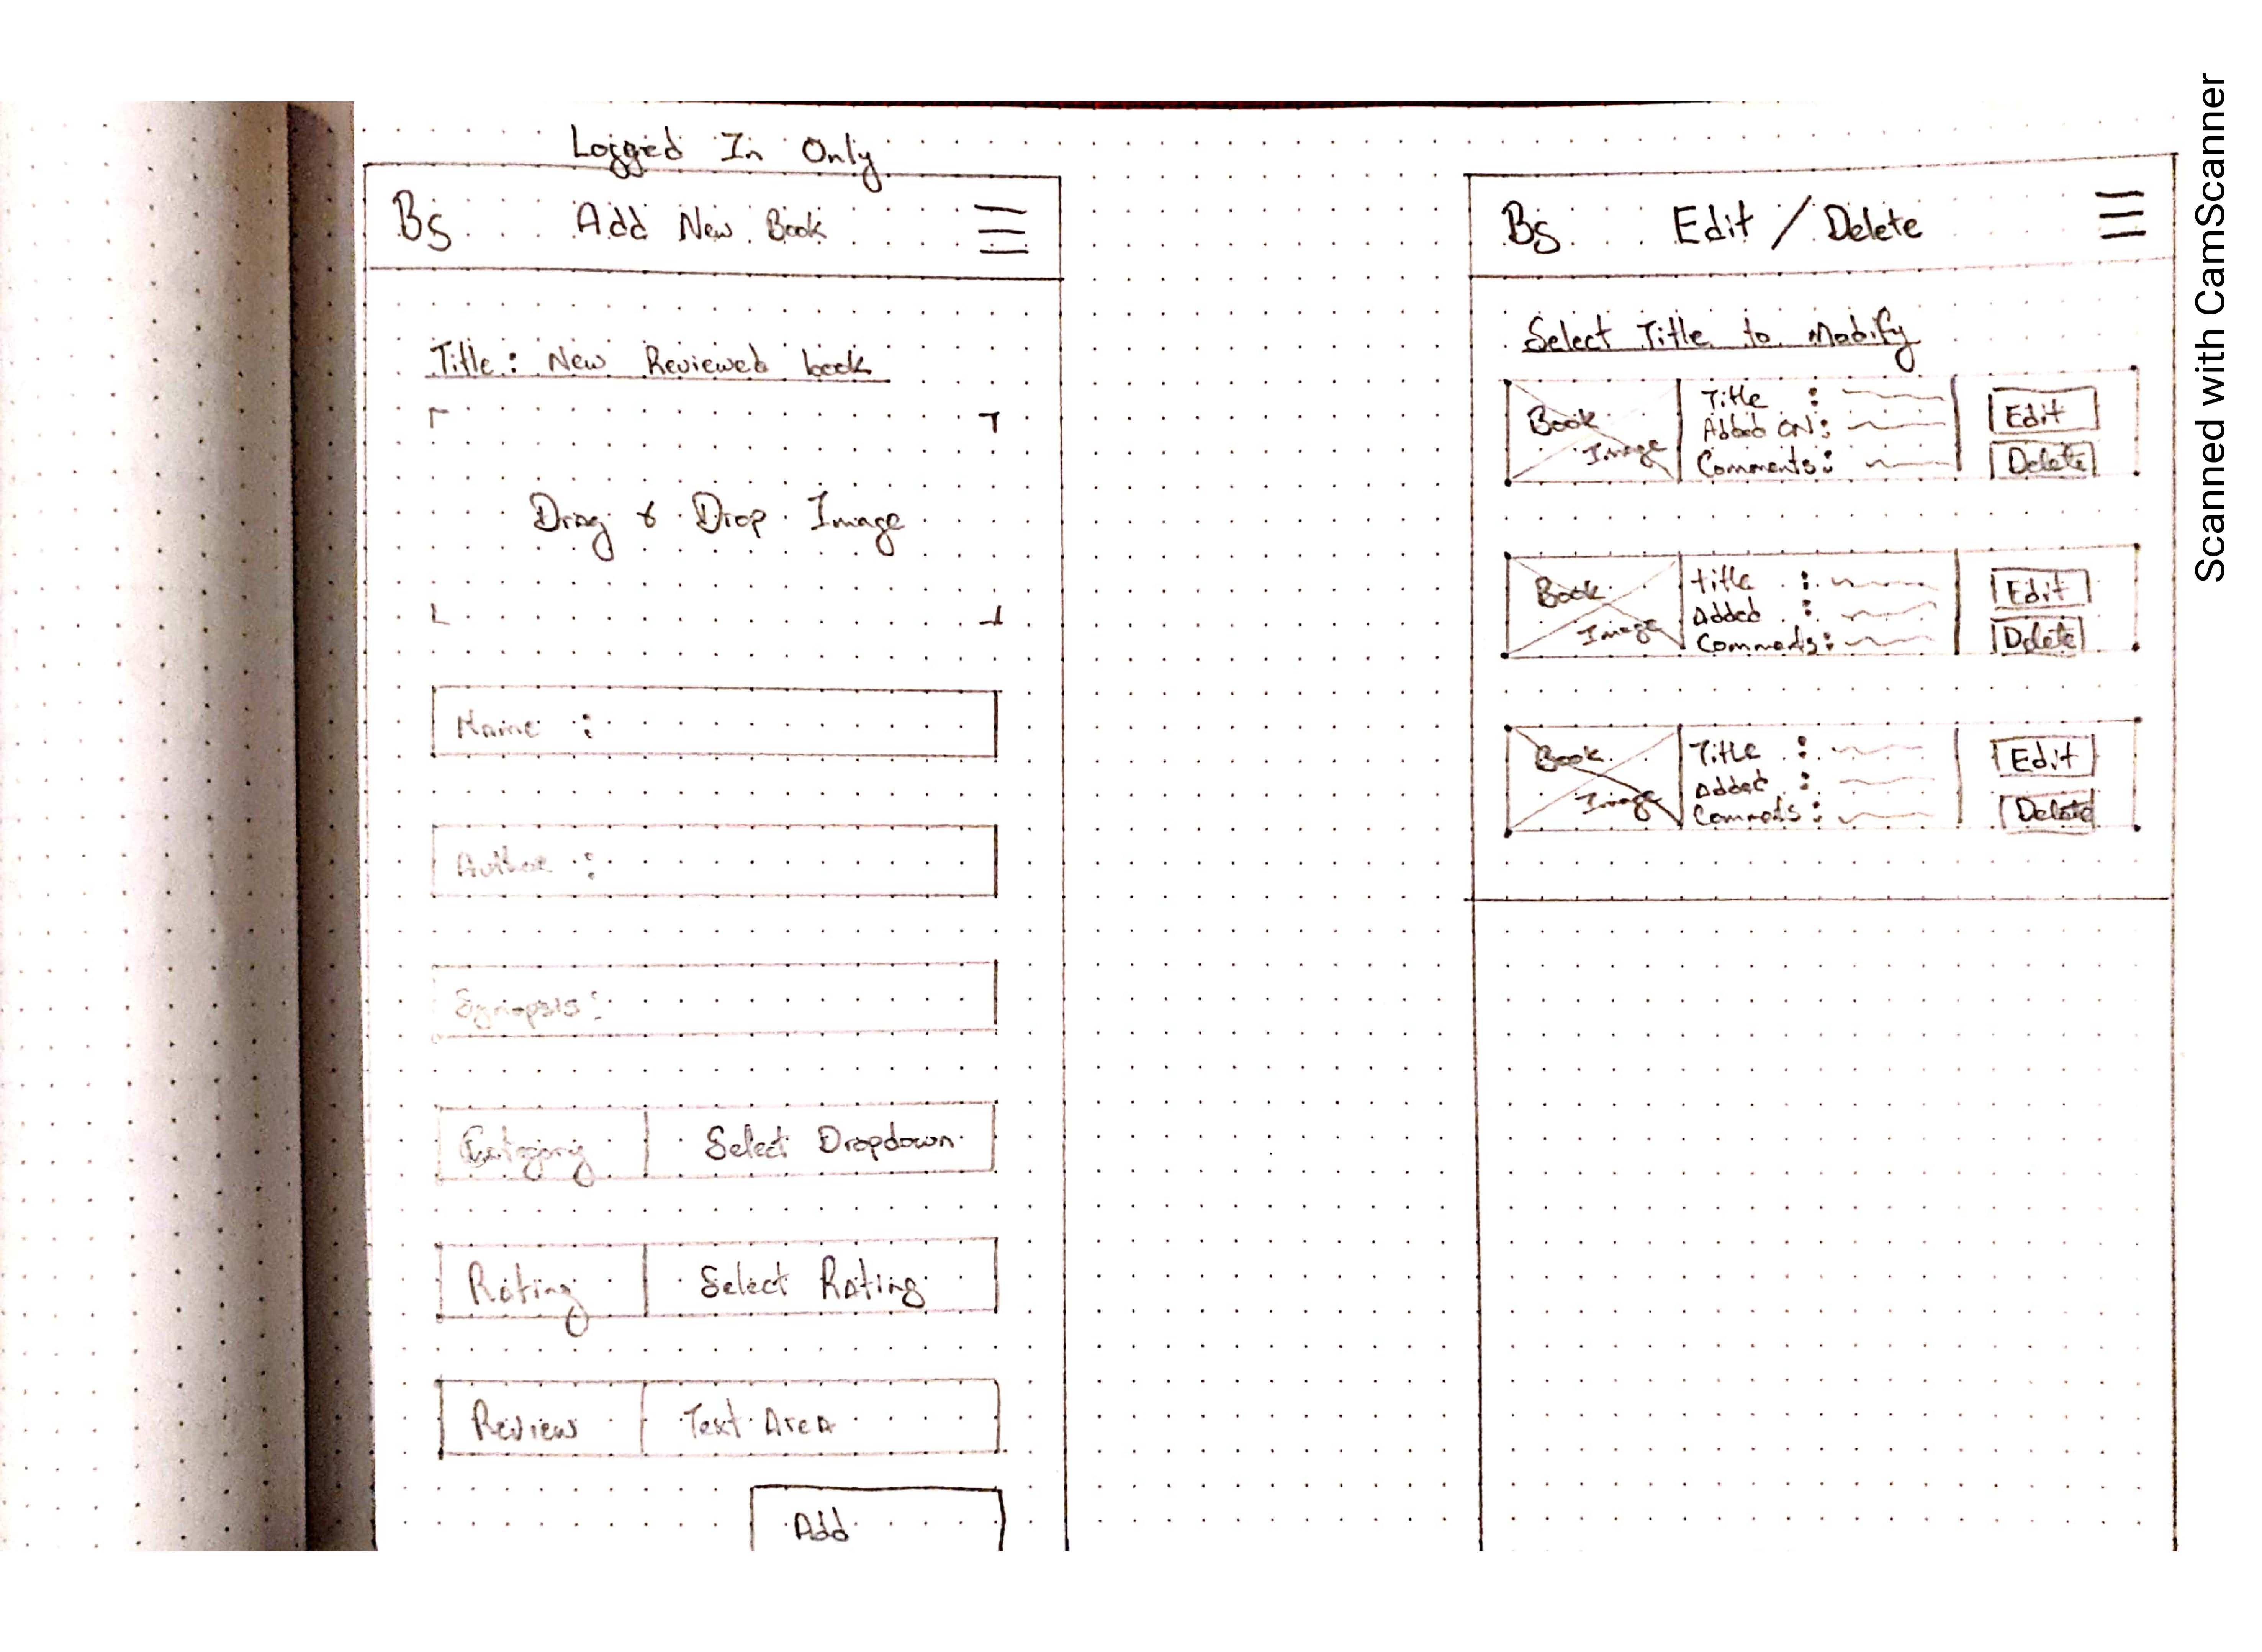 Logged In Only
Bs Add New Book
Title: New Reviewed book
Drag & Drop Image
Name :
Author :
Synopsis:
Category Select Dropdown
Rating Select Rating
Review Text Area
Add
Bs Edit / Delete
Select Title to Modify
Book Image
Title :
Added ON:
Comments:
Edit
Delete
Book Image
title :
Added :
Comments:
Edit
Delete
Book Image
Title :
Added :
Comments :
Edit
Delete
Scanned with CamScanner